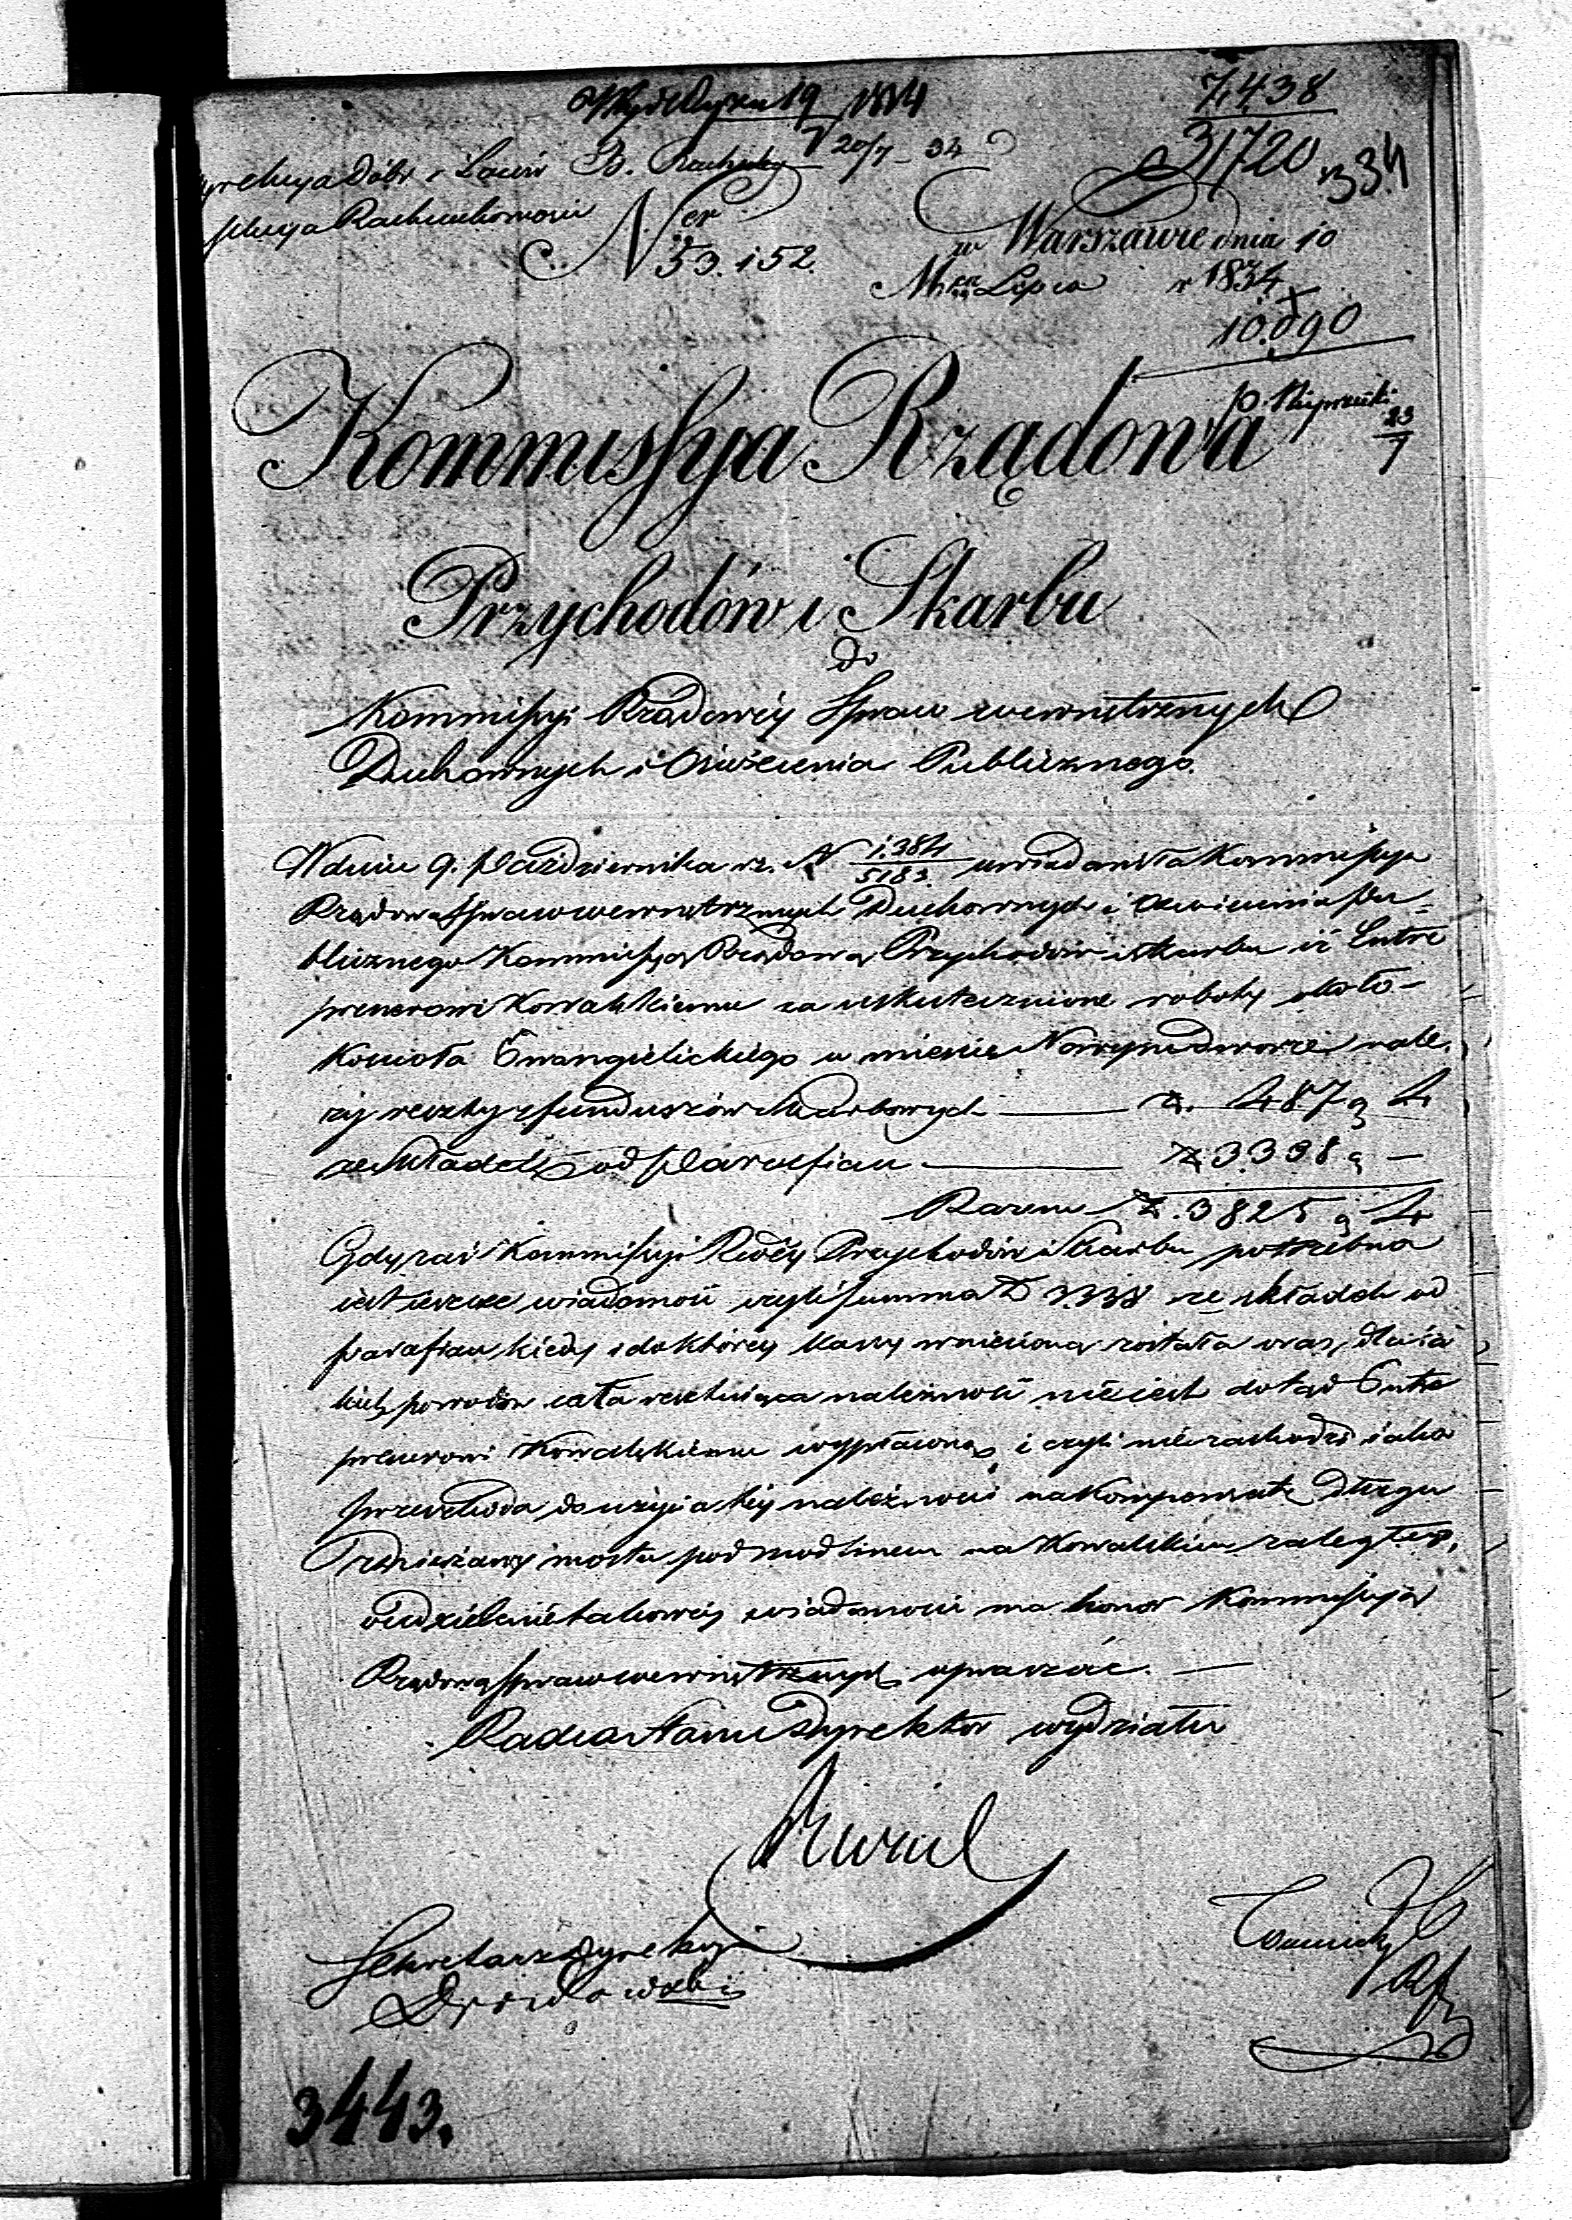 7,438
31720
334
20/7 - 34
Dóbr i Lasów B.
Ner
53.152.
w Warszawie dnia 10
Mca Lipca r 1834
10.090
23/7
Kommissya Rządowa
Przychodów i Skarbu
do
Kommissyi Rządowéy Spraw wewnętrznych
Duchownych i Oświecenia Publicznego.
W dniu 9. Października r.z. N 1.384/5183. uwiadomiła Kommissya
Rządowa Spraw wewnętrznych Duchownych i Oświecenia Pu=
blicznego Kommissyą Rządową Przychodów i Skarbu iż Entre
prenerowi Kowalskiemu za uskutecznione roboty około
Kościoła Ewangielickiego w mieście Nowym dworze nale.
ży reszty z funduszów Skarbowych — Z. 487 g 4
ze składek od Parafian — Z 3.338 g —
Razem Z. 3825 g 4
Gdy zaś Kommissyi Rdwéy Przychodów i Skarbu potrzebna
iest ieszcze wiadomość czyli summa Z 3.338 ze składek od
parafian kiedy i do któréy kassy wniesioną została oraz dla ia
kich powodów cała resztuiąca należność nie iest dotąd Entre
prenerowi Kowalskiemu wypłaconą, i czyli nie zachodzi iaka
przeszkoda do użycia téy należności na kompensatę długu
z dzierżawy mostu pod Modlinem na Kowalskim zaległego,
o udzielenie takowéy wiadomości ma honor Kommissyą
Rządową Spraw wewnętrznych upraszać. —
Radca Stanu Dyrektor wydziału
Sekretarz Dyrekcyi
3443.